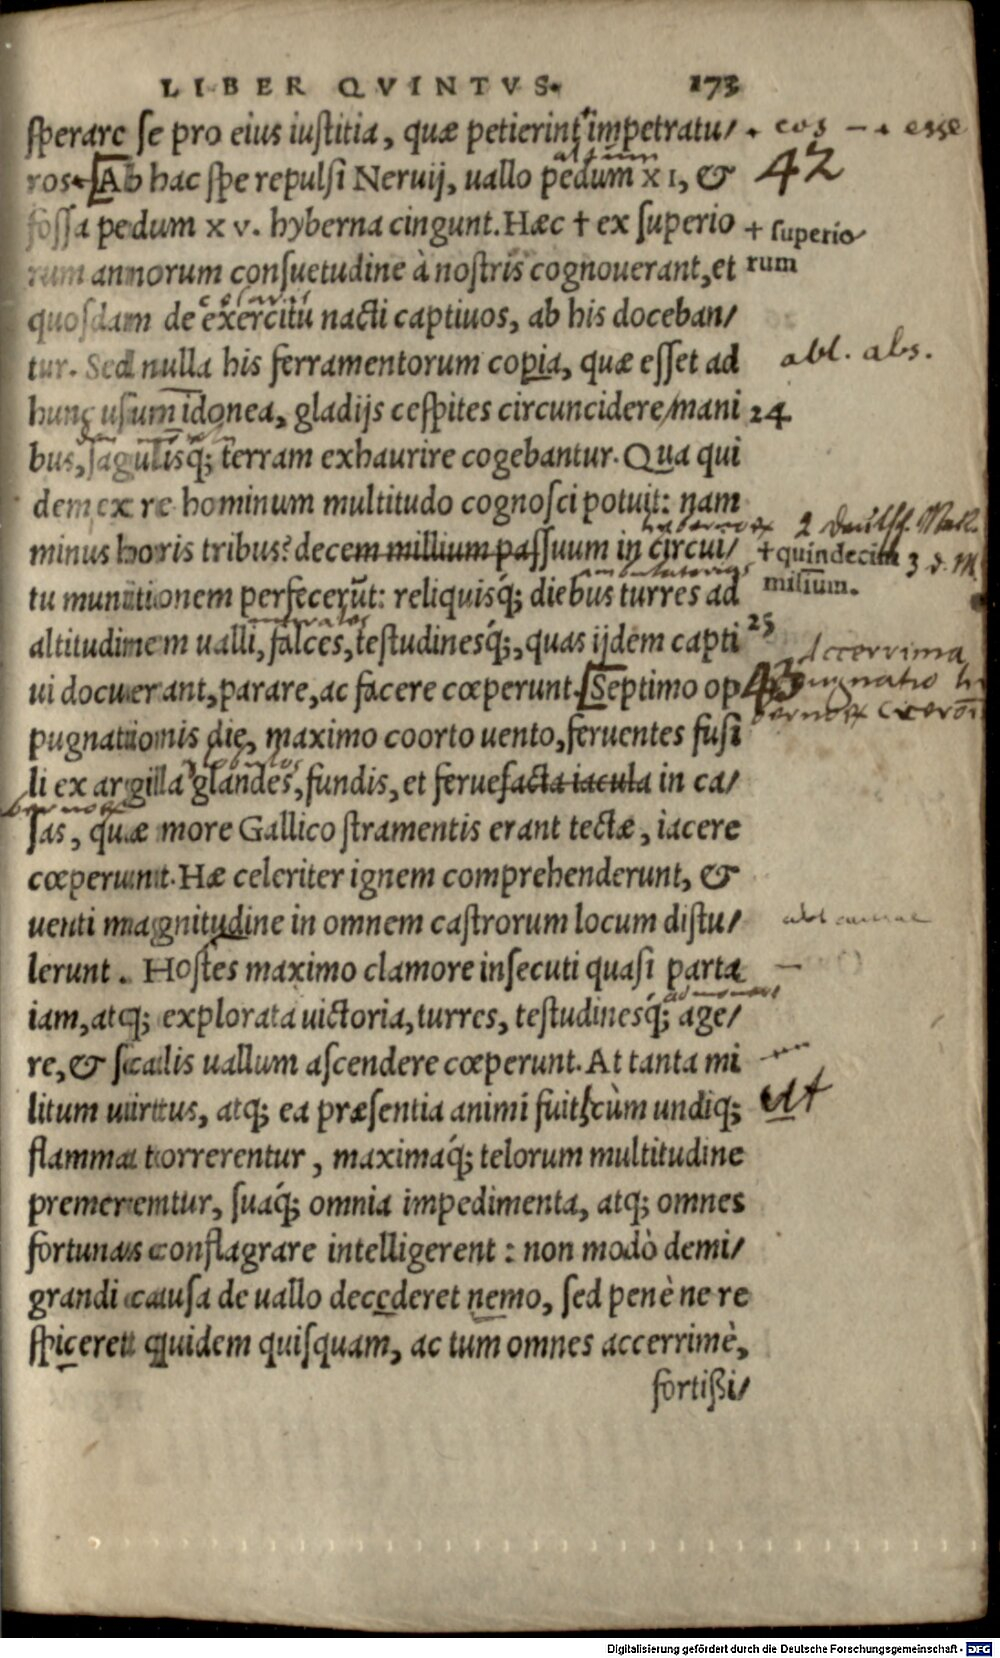 LIBER QVINTVS. 173
sperare se pro eius iustitia, quæ petierint impetratu/ + eos — + esse
altum
ros. Ab hac spe repulsi Neruij, uallo pedum XI, & 42
fossa pedum XV. hyberna cingunt. Hæc † ex superio + superio
rum annorum consuetudine à nostris cognouerant, et rum
cæsaris
quosdam de exercitu nacti captiuos, ab his doceban/
tur. Sed nulla his ferramentorum copia, quæ esset ad abl. abs.
hunc usum idonea, gladijs cespites circuncidere, mani 24
bus, sagulisq; terram exhaurire cogebantur. Qua qui
dem ex re hominum multitudo cognosci potuit: nam
minus horis tribus: decem millium passuum in circui/ + quindecim
tu munitionem perfecerũt: reliquisq́; diebus turres ad milium.
altitudinem ualli, falces, testudinesq́;, quas ijdem capti 25
ui docuerant, parare, ac facere cœperunt. Septimo op 43 Accerrima
pugnationis die, maximo coorto uento, feruentes fusi
globulos
li ex argilla glandes, fundis, et feruefacta iacula in ca/
sas, quæ more Gallico stramentis erant tectæ, iacere
cœperunt. Hæ celeriter ignem comprehenderunt, &
uenti magnitudine in omnem castrorum locum distu/
lerunt. Hostes maximo clamore insecuti quasi parta
iam, atq; explorata uictoria, turres, testudinesq́; age/
re, & scalis uallum ascendere cœperunt. At tanta mi
litum uirtus, atq; ea præsentia animi fuit, cùm undiq; ut
flamma torrerentur, maximaq́; telorum multitudine
premerentur, suaq́; omnia impedimenta, atq; omnes
fortunas conflagrare intelligerent: non modò demi/
grandi causa de uallo decederet nemo, sed penè ne re
spiceret quidem quisquam, ac tum omnes accerrimè,
fortißi/
Digitalisierung gefördert durch die Deutsche Forschungsgemeinschaft - DFG